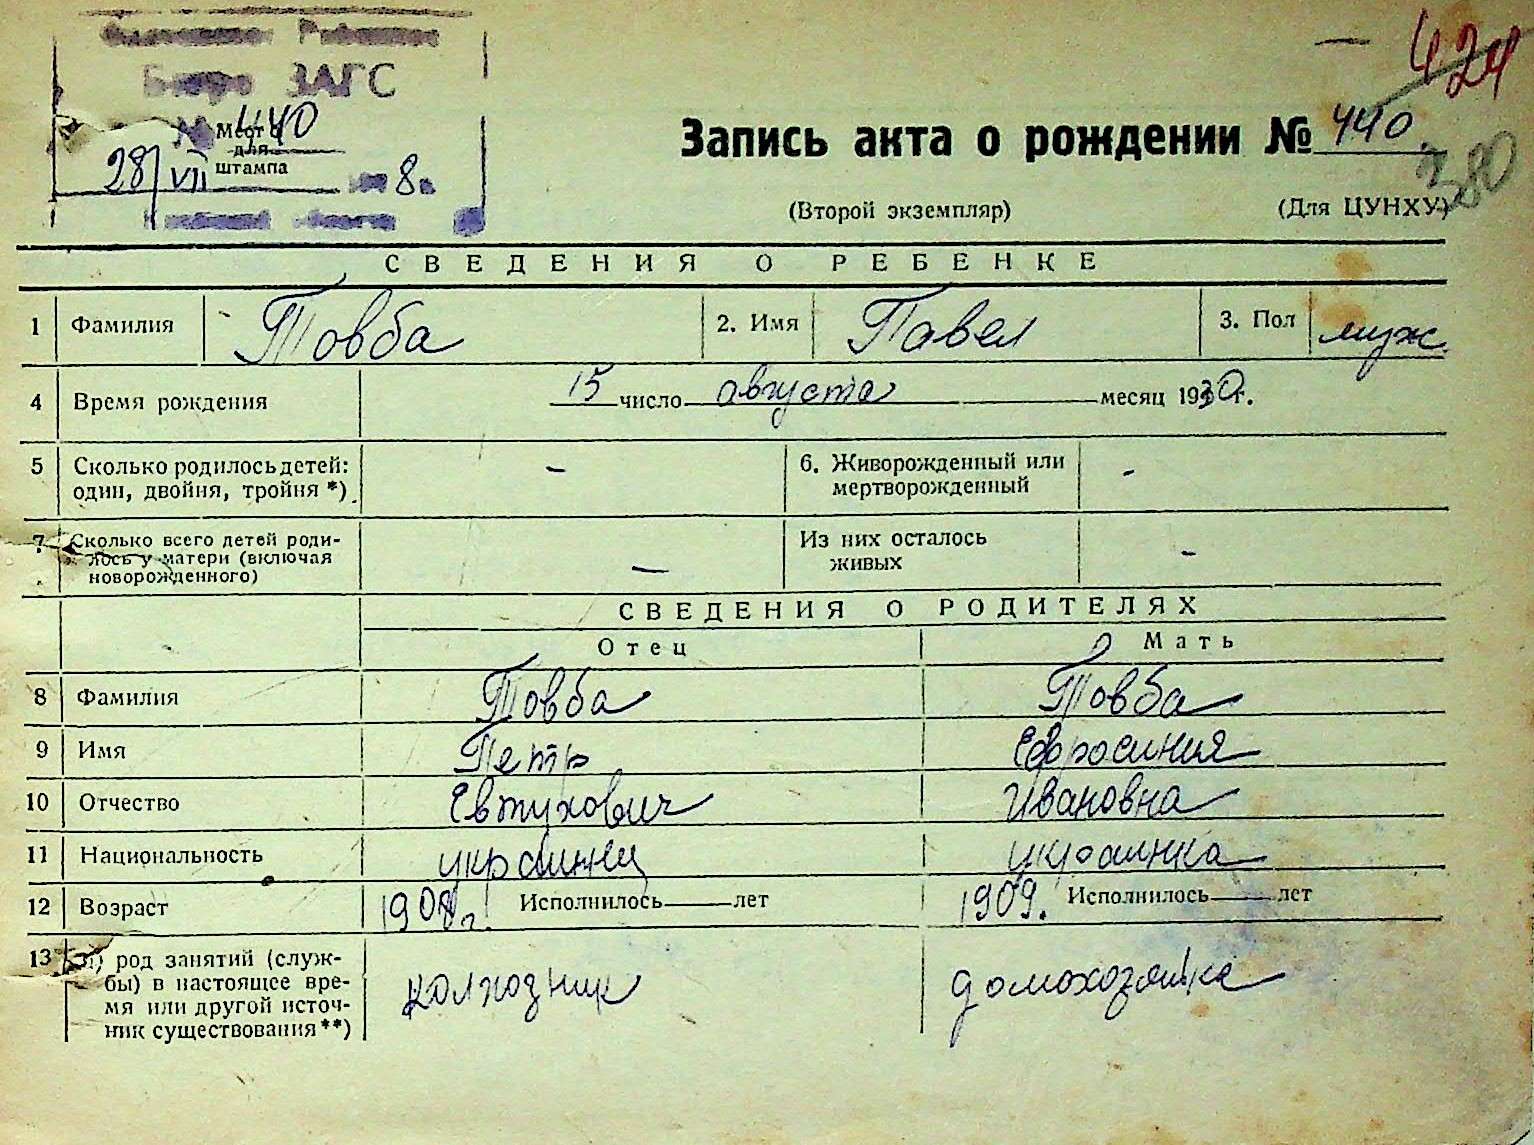 Бюро ЗАГС
№ 440
Место для штампа
28/VII 8 г.
424
Запись акта о рождении № 440
380
(Второй экземпляр) (Для ЦУНХУ)
СВЕДЕНИЯ О РЕБЕНКЕ
1 Фамилия Товба 2. Имя Павел 3. Пол муж.
4 Время рождения 15 число августа месяц 1930 г.
5 Сколько родилось детей: один, двойня, тройня *) – 6. Живорожденный или мертворожденный -
7 Сколько всего детей родилось у матери (включая новорожденного) — Из них осталось живых -
СВЕДЕНИЯ О РОДИТЕЛЯХ
Отец Мать
8 Фамилия Товба Товба
9 Имя Петр Ефросиния
10 Отчество Евтухович Ивановна
11 Национальность украинец украинка
12 Возраст 1908 г. Исполнилось лет 1909. Исполнилось лет
13 а) род занятий (службы) в настоящее время или другой источник существования **) колхозник домохозяйка